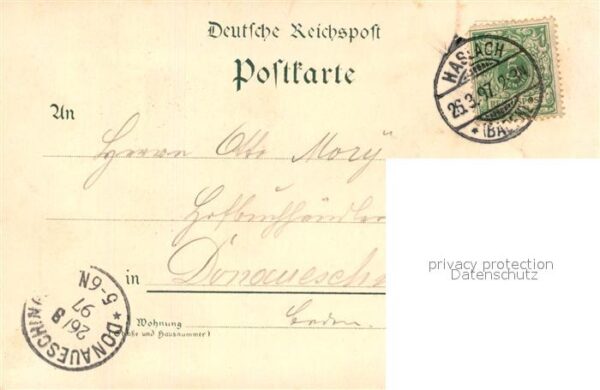 Deutsche Reichspost
Postkarte
HASLACH
26.3.97. 2-3N
* (BADEN) *
5
An
Herrn Otto Mory
Hofbuchhändler
in Donauesch
Baden.
Wohnung
(Straße und Hausnummer)
* DONAUESCHIN
26/3
97
5-6N.
privacy protection
Datenschutz